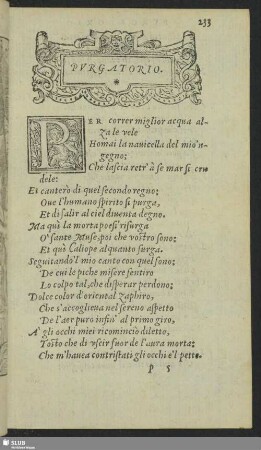 233
PVRGATORIO.
PER correr miglior acqua al-
za le vele
Homai la nauicella del mio'n-
gegno;
Che lascia retr'à se mar si cru
dele:
Et canterò di quel secondo regno;
Oue l'humano spirito si purga,
Et di salir al ciel diuenta degno.
Ma quì la morta poesì risurga
O' sante Muse, poi che vostro sono;
Et quì Caliope alquanto surga.
Seguitando'l mio canto con quel sono;
De cui le piche misere sentiro
Lo colpo tal, che disperar perdono;
Dolce color d'oriental zaphiro,
Che s'accoglieua nel sereno aspetto
De l'aer puro infin' al primo giro,
A' gli occhi miei ricominciò diletto,
Tosto che di vscir fuor de l'aura morta;
Che m'hauea contristati gli occhi e'l petto.
P 5
SLUB